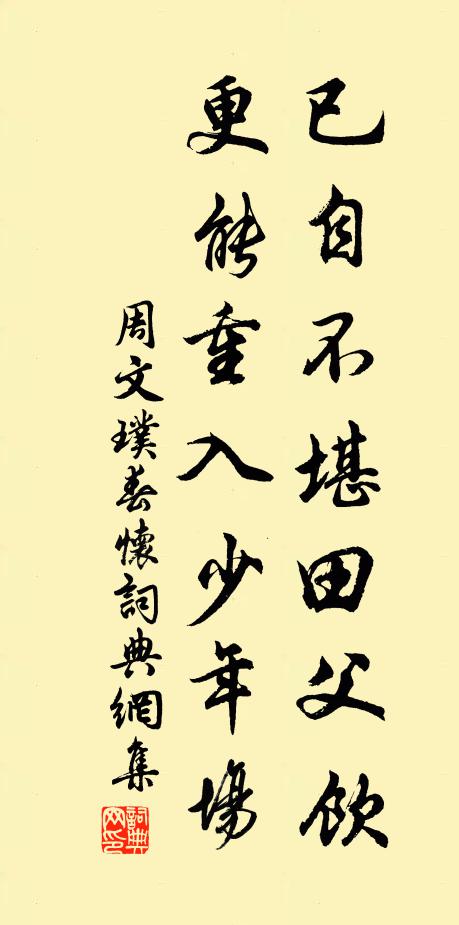 已自不堪田父飲
更能重入少年場
周文璞春懷詞典網集
詞典
网印